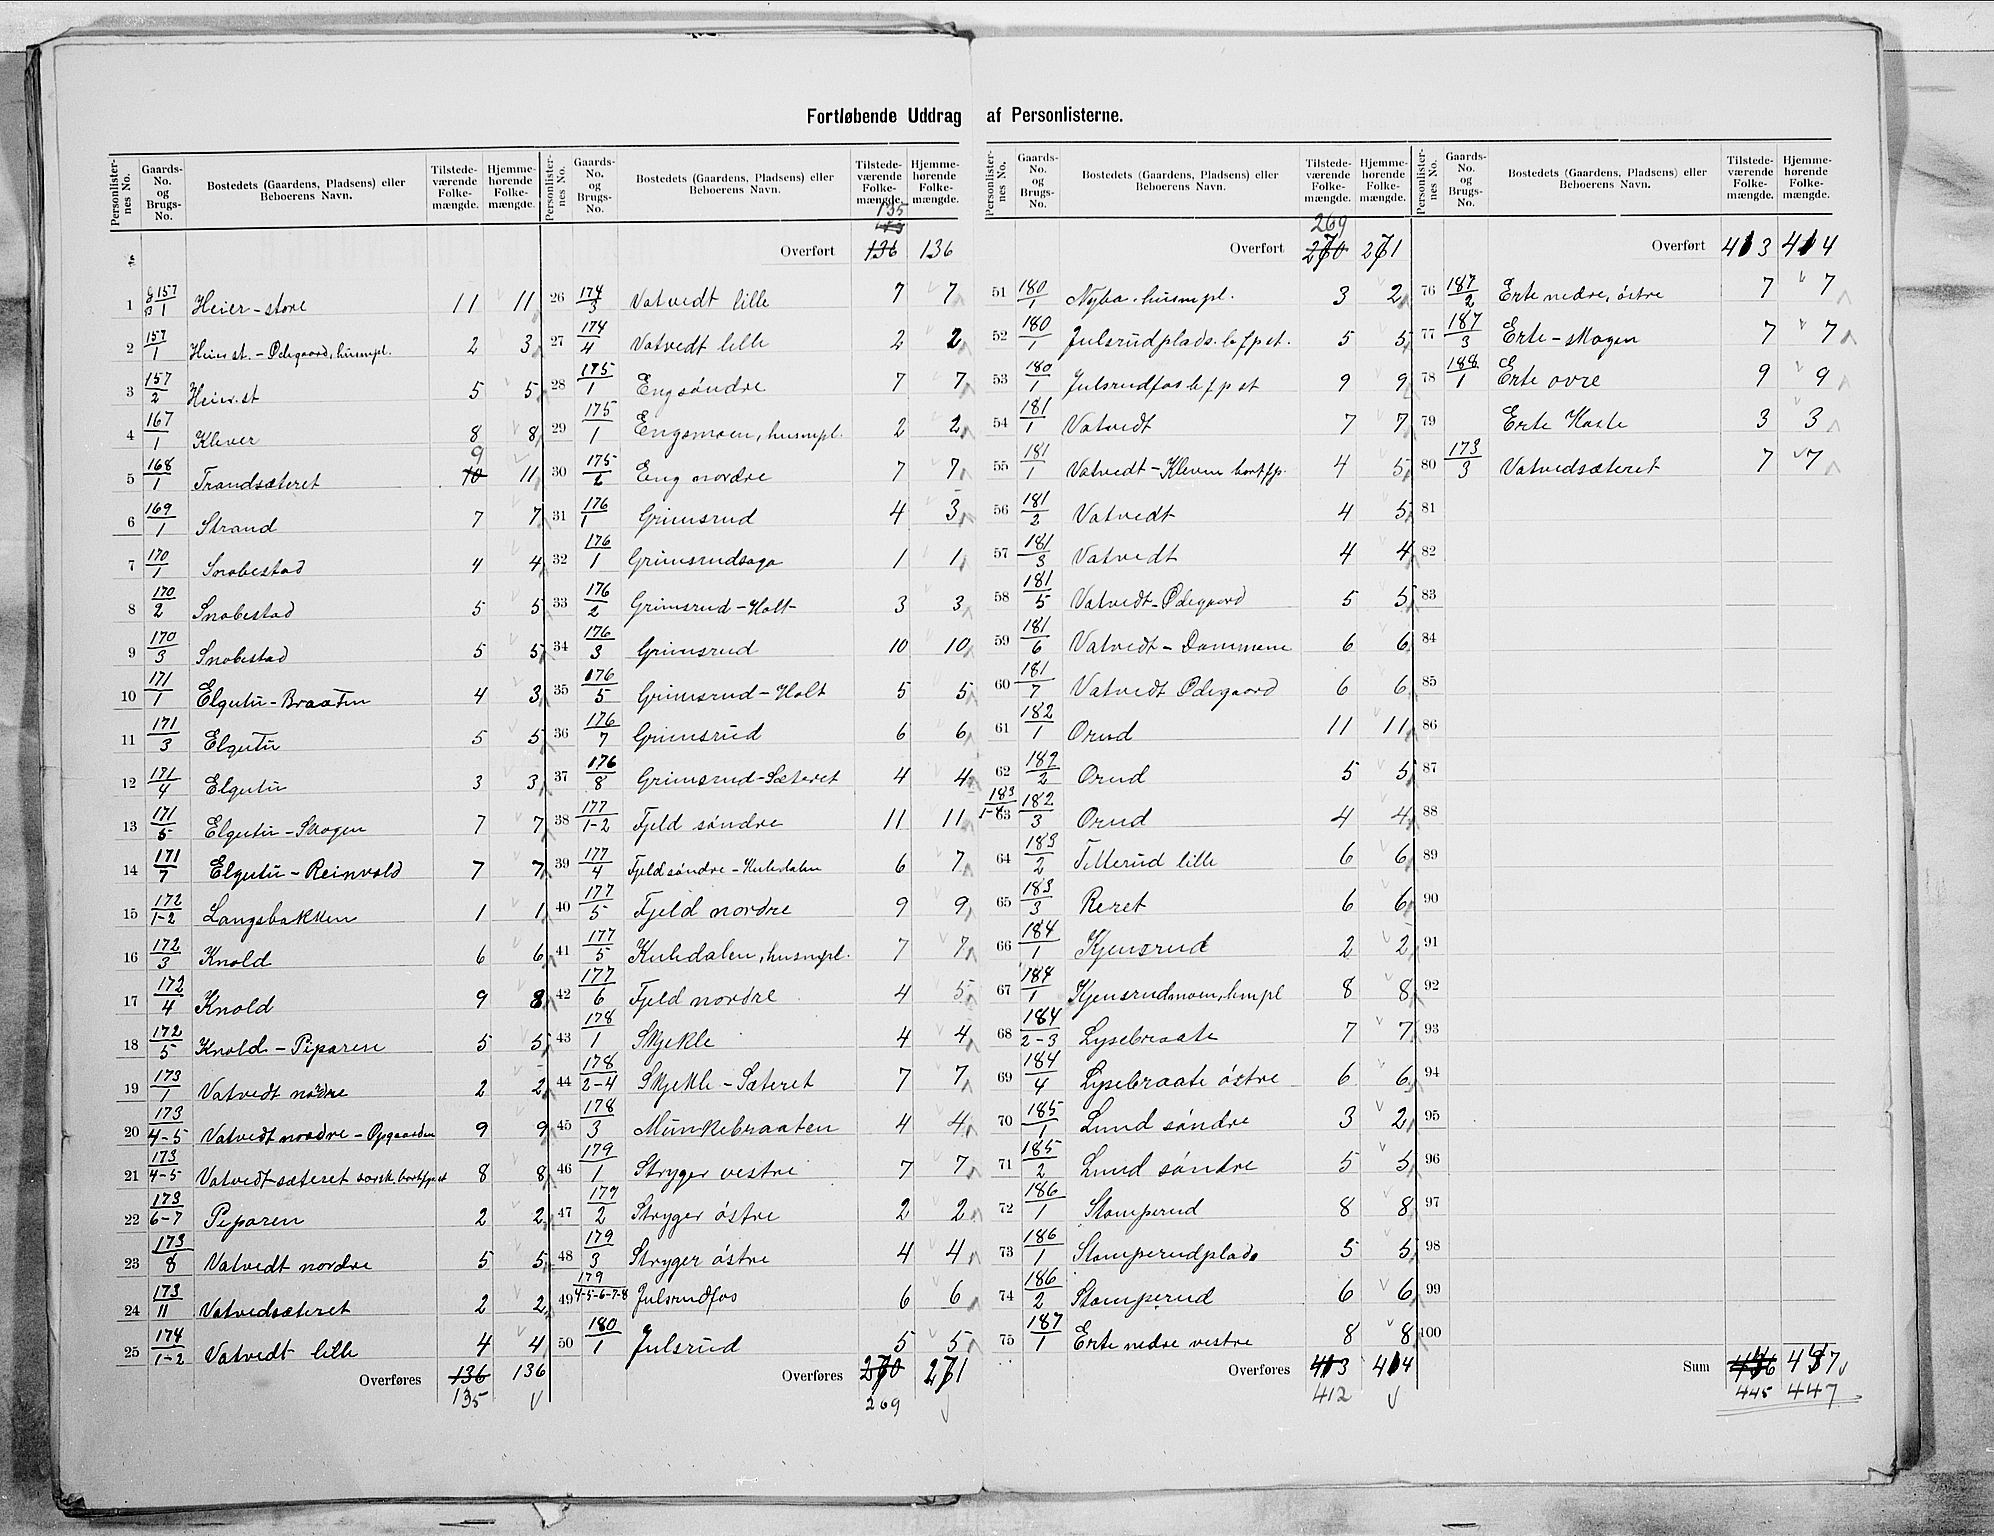 Fortløbende Uddrag af Personlisterne.
Personlister-nes No. Gaards-No. og Brugs-No. Bostedets (Gaardens, Pladsens) eller Beboerens Navn. Tilstede-værende Folke-mængde. Hjemme-hørende Folke-mængde.
1 G 157 B 1 Heier-store 11 11
2 157/1 Heier st. - Ødegaard, husmpl. 2 3
3 157/2 Heier. st 5 5
4 167/1 Klever 8 8
5 168/1 Trandsæteret 10 9 11
6 169/1 Strand 7 7
7 170/1 Snobestad 4 4
8 170/2 Snobestad 5 5
9 170/3 Snobestad 5 5
10 171/1 Elgetu-Braaten 4 3
11 171/3 Elgetu 5 5
12 171/4 Elgetu 3 3
13 171/5 Elgetu-Skogen 7 7
14 171/7 Elgetu-Reinvold 7 7
15 172/1-2 Langsbakken 1 1
16 172/3 Knold 6 6
17 172/4 Knold 9 8
18 172/5 Knold-Piparen 5 5
19 173/1 Vatvedt nordre 2 2
20 173/4-5 Vatvedt nordre - Opgaarden 9 9
21 173/4-5 Vatvedt-sæteret 8 8
22 173/6-7 Piparen 2 2
23 173/8 Vatvedt nordre 5 5
24 173/11 Vatvedsæteret 2 2
25 174/1-2 Vatvedt lille 4 4
Overføres 136 136
135
Personlister-nes No. Gaards-No. og Brugs-No. Bostedets (Gaardens, Pladsens) eller Beboerens Navn. Tilstede-værende Folke-mængde. Hjemme-hørende Folke-mængde.
135
Overført 136 136
26 174/3 Vatvedt lille 7 7
27 174/4 Vatvedt lille 2 2
28 175/1 Eng søndre 7 7
29 175/1 Engsmoen, husmpl. 2 2
30 175/2 Eng nordre 7 7
31 176/1 Grimsrud 4 3
32 176/1 Grimsrudsaga 1 1
33 176/2 Grimsrud-Holt 3 3
34 176/3 Grimsrud 10 10
35 176/5 Grimsrud-Holt 5 5
36 176/7 Grimsrud 6 6
37 176/8 Grimsrud-Sæteret 4 4
38 177/1-2 Fjeld søndre 11 11
39 177/4 Fjeld søndre - Kuledalen 6 7
40 177/5 Fjeld nordre 9 9
41 177/5 Kuledalen, husmpl. 7 7
42 177/6 Fjeld nordre 4 5
43 178/1 Skjekle 4 4
44 178/2-4 Skjekle-Sæteret 7 7
45 178/3 Munkebraaten 4 4
46 179/1 Stryger vestre 7 7
47 179/2 Stryger østre 2 2
48 179/3 Stryger østre 4 4
49 179/4-5-6-7-8 Julsrudfos 6 6
50 180/1 Julsrud 5 5
Overføres 270 271
269
Personlister-nes No. Gaards-No. og Brugs-No. Bostedets (Gaardens, Pladsens) eller Beboerens Navn. Tilstede-værende Folke-mængde. Hjemme-hørende Folke-mængde.
269
Overført 270 271
51 180/1 Nybo. husmpl. 3 2
52 180/1 Julsrudplads 5 5
53 180/1 Julsrudfos 9 9
54 181/1 Vatvedt 7 7
55 181/1 Vatvedt-Kleven 4 5
56 181/2 Vatvedt 4 5
57 181/3 Vatvedt 4 4
58 181/5 Vatvedt-Ødegaard 5 5
59 181/6 Vatvedt-Dammene 6 6
60 181/7 Vatvedt Ødegaard 6 6
61 182/1 Orud 11 11
62 182/2 Orud 5 5
183/1-4
63 182/3 Orud 4 4
64 183/2 Titterud lille 6 6
65 183/3 Reret 6 6
66 184/1 Kjensrud 2 2
67 184/1 Kjensrudmoen, hmpl 8 8
68 184/2-3 Lysebraate 7 7
69 184/4 Lysebraate østre 6 6
70 185/1 Lund søndre 3 2
71 185/2 Lund søndre 5 5
72 186/1 Stomperud 8 8
73 186/1 Stomperudplads 5 5
74 186/2 Stomperud 6 6
75 187/1 Erte nedre vestre 8 8
Overføres 413 414
412
Personlister-nes No. Gaards-No. og Brugs-No. Bostedets (Gaardens, Pladsens) eller Beboerens Navn. Tilstede-værende Folke-mængde. Hjemme-hørende Folke-mængde.
Overført 413 414
76 187/2 Erte nedre, østre 7 7
77 187/3 Erte-Mogen 7 7
78 188/1 Erte ovre 9 9
79 Erte Hasle 3 3
80 173/3 Vatvedsæteret 7 7
81
82
83
84
85
86
87
88
89
90
91
92
93
94
95
96
97
98
99
100
Sum 446 447
445 447